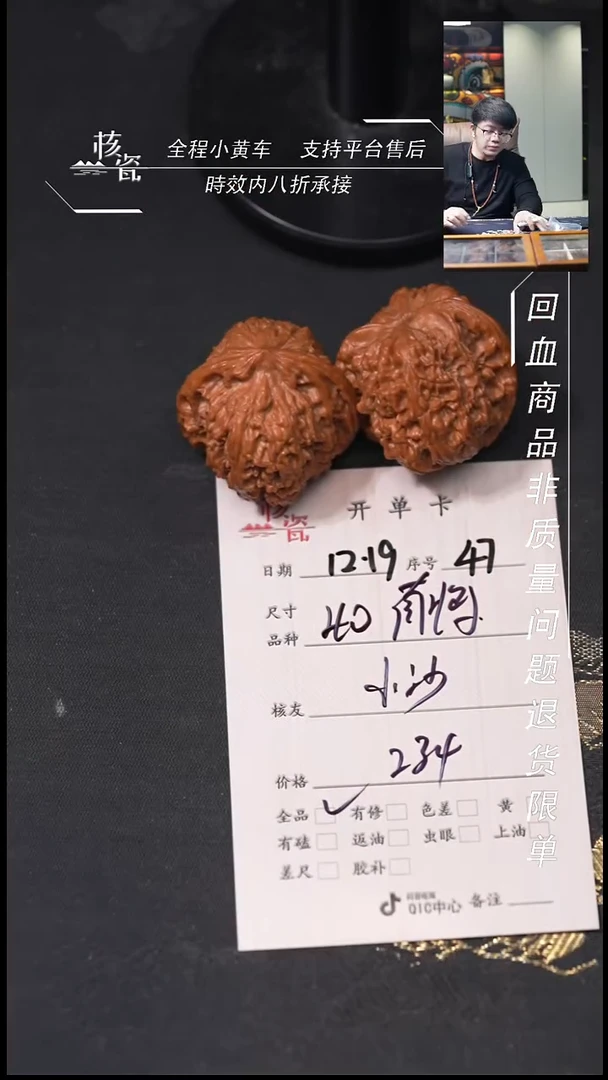 核瓷
全程小黄车 支持平台售后
時效内八折承接
回血商品非质量问题退货限单
核瓷
开单卡
日期 12·19 序号 47
尺寸
品种 40
核友 小沙
价格 234
全品 ✓ 有修 色差 黄
有磕 返油 虫眼 上油
差尺 胶补
QIC中心 备注